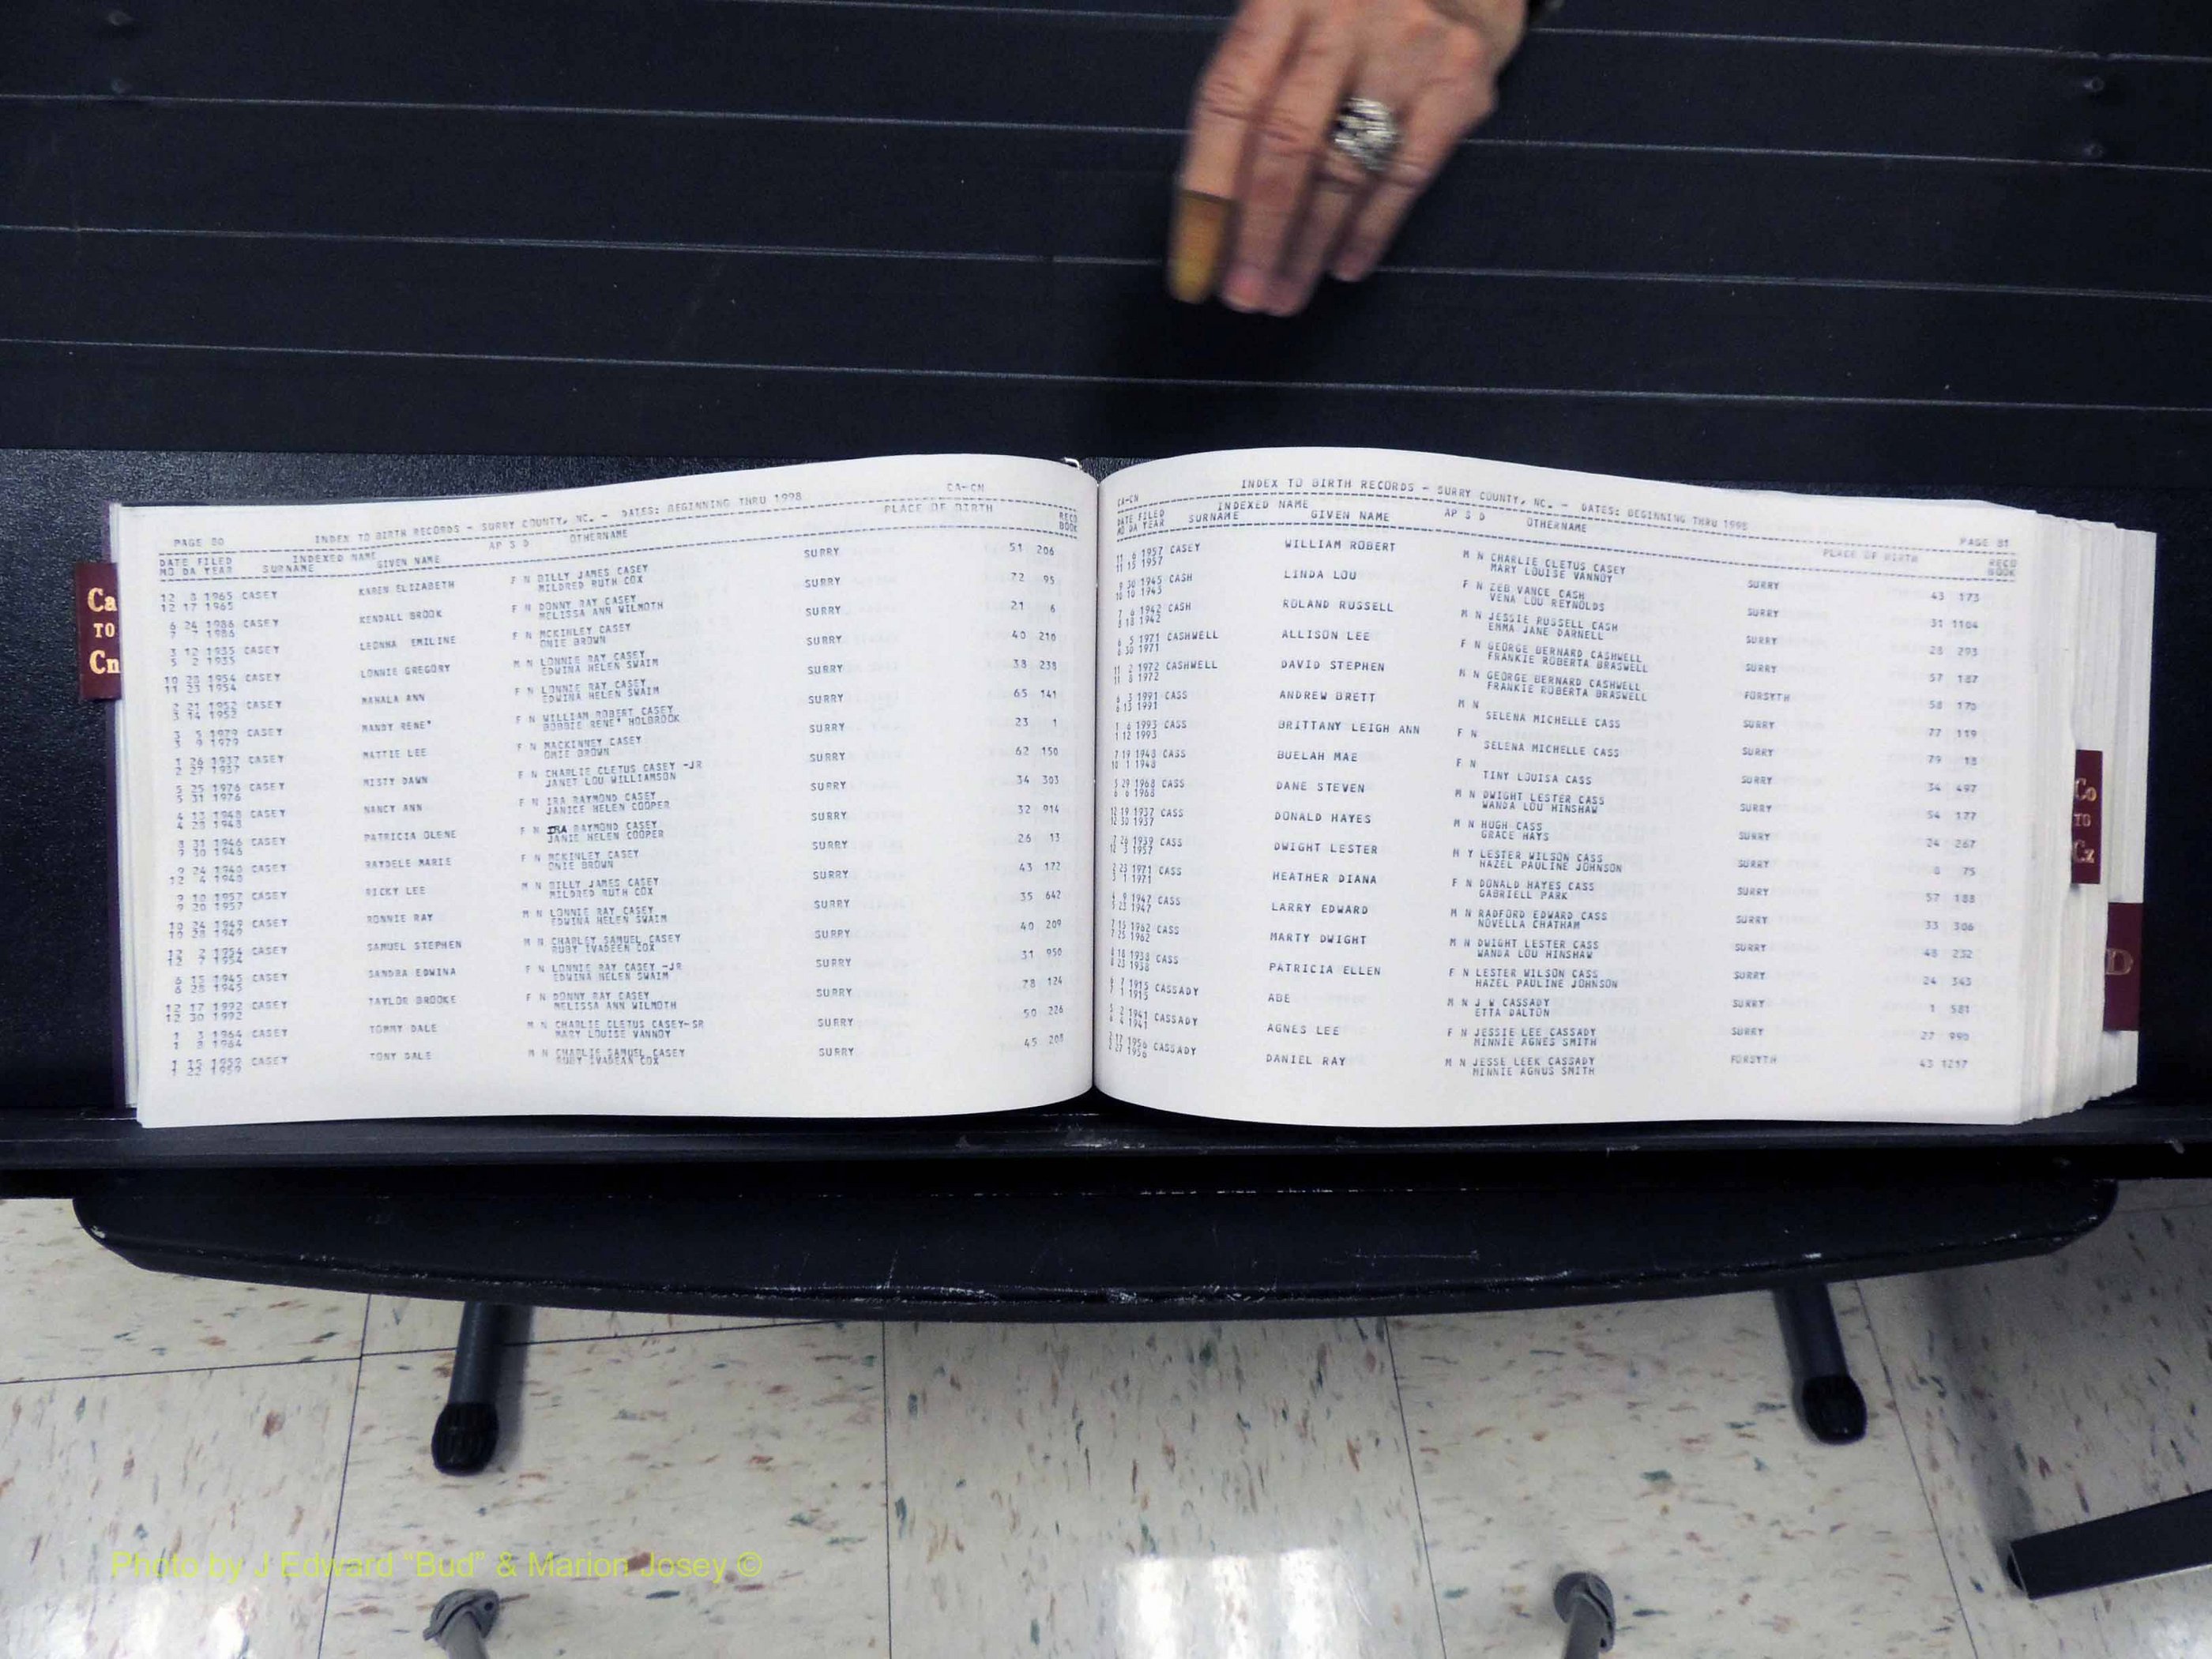 Ca
TO
Cn
PAGE 80 INDEX TO BIRTH RECORDS - SURRY COUNTY, NC. - DATES: BEGINNING THRU 1998 CA-CN
DATE FILED INDEXED NAME AP S D OTHERNAME PLACE OF BIRTH RECD
MO DA YEAR SURNAME GIVEN NAME BOOK
12 8 1965 CASEY KAREN ELIZABETH F N BILLY JAMES CASEY SURRY 51 206
12 17 1965 MILDRED RUTH COX
6 24 1986 CASEY KENDALL BROOK F N DONNY RAY CASEY SURRY 72 95
7 7 1986 MELISSA ANN WILMOTH
3 12 1935 CASEY LEONNA EMILINE F N MCKINLEY CASEY SURRY 21 6
5 2 1935 ONIE BROWN
10 28 1954 CASEY LONNIE GREGORY M N LONNIE RAY CASEY SURRY 40 210
11 23 1954 EDWINA HELEN SWAIM
2 21 1952 CASEY MAHALA ANN F N LONNIE RAY CASEY SURRY 38 238
3 14 1952 EDWINA HELEN SWAIM
3 5 1979 CASEY MANDY RENE' F N WILLIAM ROBERT CASEY SURRY 65 141
3 9 1979 BOBBIE RENE' HOLBROOK
1 26 1937 CASEY MATTIE LEE F N MACKINNEY CASEY SURRY 23 1
2 27 1937 OMIE BROWN
5 25 1976 CASEY MISTY DAWN F N CHARLIE CLETUS CASEY -JR SURRY 62 150
5 31 1976 JANET LOU WILLIAMSON
4 13 1948 CASEY NANCY ANN F N IRA RAYMOND CASEY SURRY 34 303
4 28 1948 JANICE HELEN COOPER
8 31 1946 CASEY PATRICIA OLENE F N IRA RAYMOND CASEY SURRY 32 914
9 30 1946 JANIE HELEN COOPER
9 24 1940 CASEY RAYDELE MARIE F N MCKINLEY CASEY SURRY 26 13
12 4 1940 ONIE BROWN
9 10 1957 CASEY RICKY LEE M N BILLY JAMES CASEY SURRY 43 172
9 20 1957 MILDRED RUTH COX
10 24 1949 CASEY RONNIE RAY M N LONNIE RAY CASEY SURRY 35 642
10 28 1949 EDWINA HELEN SWAIM
12 2 1954 CASEY SAMUEL STEPHEN M N CHARLEY SAMUEL CASEY SURRY 40 209
12 7 1954 RUBY IVADEEN COX
6 15 1945 CASEY SANDRA EDWINA F N LONNIE RAY CASEY -JR SURRY 31 950
6 28 1945 EDWINA HELEN SWAIM
12 17 1992 CASEY TAYLOR BROOKE F N DONNY RAY CASEY SURRY 78 124
12 30 1992 MELISSA ANN WILMOTH
1 3 1964 CASEY TOMMY DALE M N CHARLIE CLETUS CASEY-SR SURRY 50 226
1 8 1964 MARY LOUISE VANNOY
1 15 1959 CASEY TONY DALE M N CHARLIE SAMUEL CASEY SURRY 45 208
1 22 1959 RUBY IVADEAN COX
CA-CN INDEX TO BIRTH RECORDS - SURRY COUNTY, NC. - DATES: BEGINNING THRU 1998 PAGE 81
DATE FILED INDEXED NAME AP S D OTHERNAME PLACE OF BIRTH RECD
MO DA YEAR SURNAME GIVEN NAME BOOK
11 6 1957 CASEY WILLIAM ROBERT M N CHARLIE CLETUS CASEY SURRY 43 173
11 15 1957 MARY LOUISE VANNOY
9 30 1945 CASH LINDA LOU F N ZEB VANCE CASH SURRY 31 1104
10 10 1945 VENA LOU REYNOLDS
7 6 1942 CASH ROLAND RUSSELL M N JESSIE RUSSELL CASH SURRY 28 293
8 18 1942 EMMA JANE DARNELL
6 5 1971 CASHWELL ALLISON LEE F N GEORGE BERNARD CASHWELL SURRY 57 187
6 30 1971 FRANKIE ROBERTA BRASWELL
11 2 1972 CASHWELL DAVID STEPHEN M N GEORGE BERNARD CASHWELL FORSYTH 58 170
11 8 1972 FRANKIE ROBERTA BRASWELL
6 3 1991 CASS ANDREW BRETT M N SURRY 77 119
6 13 1991 SELENA MICHELLE CASS
1 6 1993 CASS BRITTANY LEIGH ANN F N SURRY 79 18
1 12 1993 SELENA MICHELLE CASS
7 19 1948 CASS BUELAH MAE F N SURRY 34 497
10 1 1948 TINY LOUISA CASS
5 29 1968 CASS DANE STEVEN M N DWIGHT LESTER CASS SURRY 54 177
6 6 1968 WANDA LOU HINSHAW
12 19 1937 CASS DONALD HAYES M N HUGH CASS SURRY 24 267
12 30 1937 GRACE HAYS
7 26 1939 CASS DWIGHT LESTER M Y LESTER WILSON CASS SURRY 8 75
12 3 1957 HAZEL PAULINE JOHNSON
2 23 1971 CASS HEATHER DIANA F N DONALD HAYES CASS SURRY 57 188
3 1 1971 GABRIELL PARK
4 9 1947 CASS LARRY EDWARD M N RADFORD EDWARD CASS SURRY 33 306
5 23 1947 NOVELLA CHATHAM
7 15 1962 CASS MARTY DWIGHT M N DWIGHT LESTER CASS SURRY 48 232
7 25 1962 WANDA LOU HINSHAW
8 18 1938 CASS PATRICIA ELLEN F N LESTER WILSON CASS SURRY 24 343
8 23 1938 HAZEL PAULINE JOHNSON
6 7 1915 CASSADY ABE M N J W CASSADY SURRY 1 581
7 1 1915 ETTA DALTON
5 2 1941 CASSADY AGNES LEE F N JESSIE LEE CASSADY SURRY 27 990
6 4 1941 MINNIE AGNES SMITH
2 17 1956 CASSADY DANIEL RAY M N JESSE LEEK CASSADY FORSYTH 43 1217
2 27 1956 MINNIE AGNUS SMITH
Co
TO
Cz
D
Photo by J Edward “Bud” & Marion Josey ©